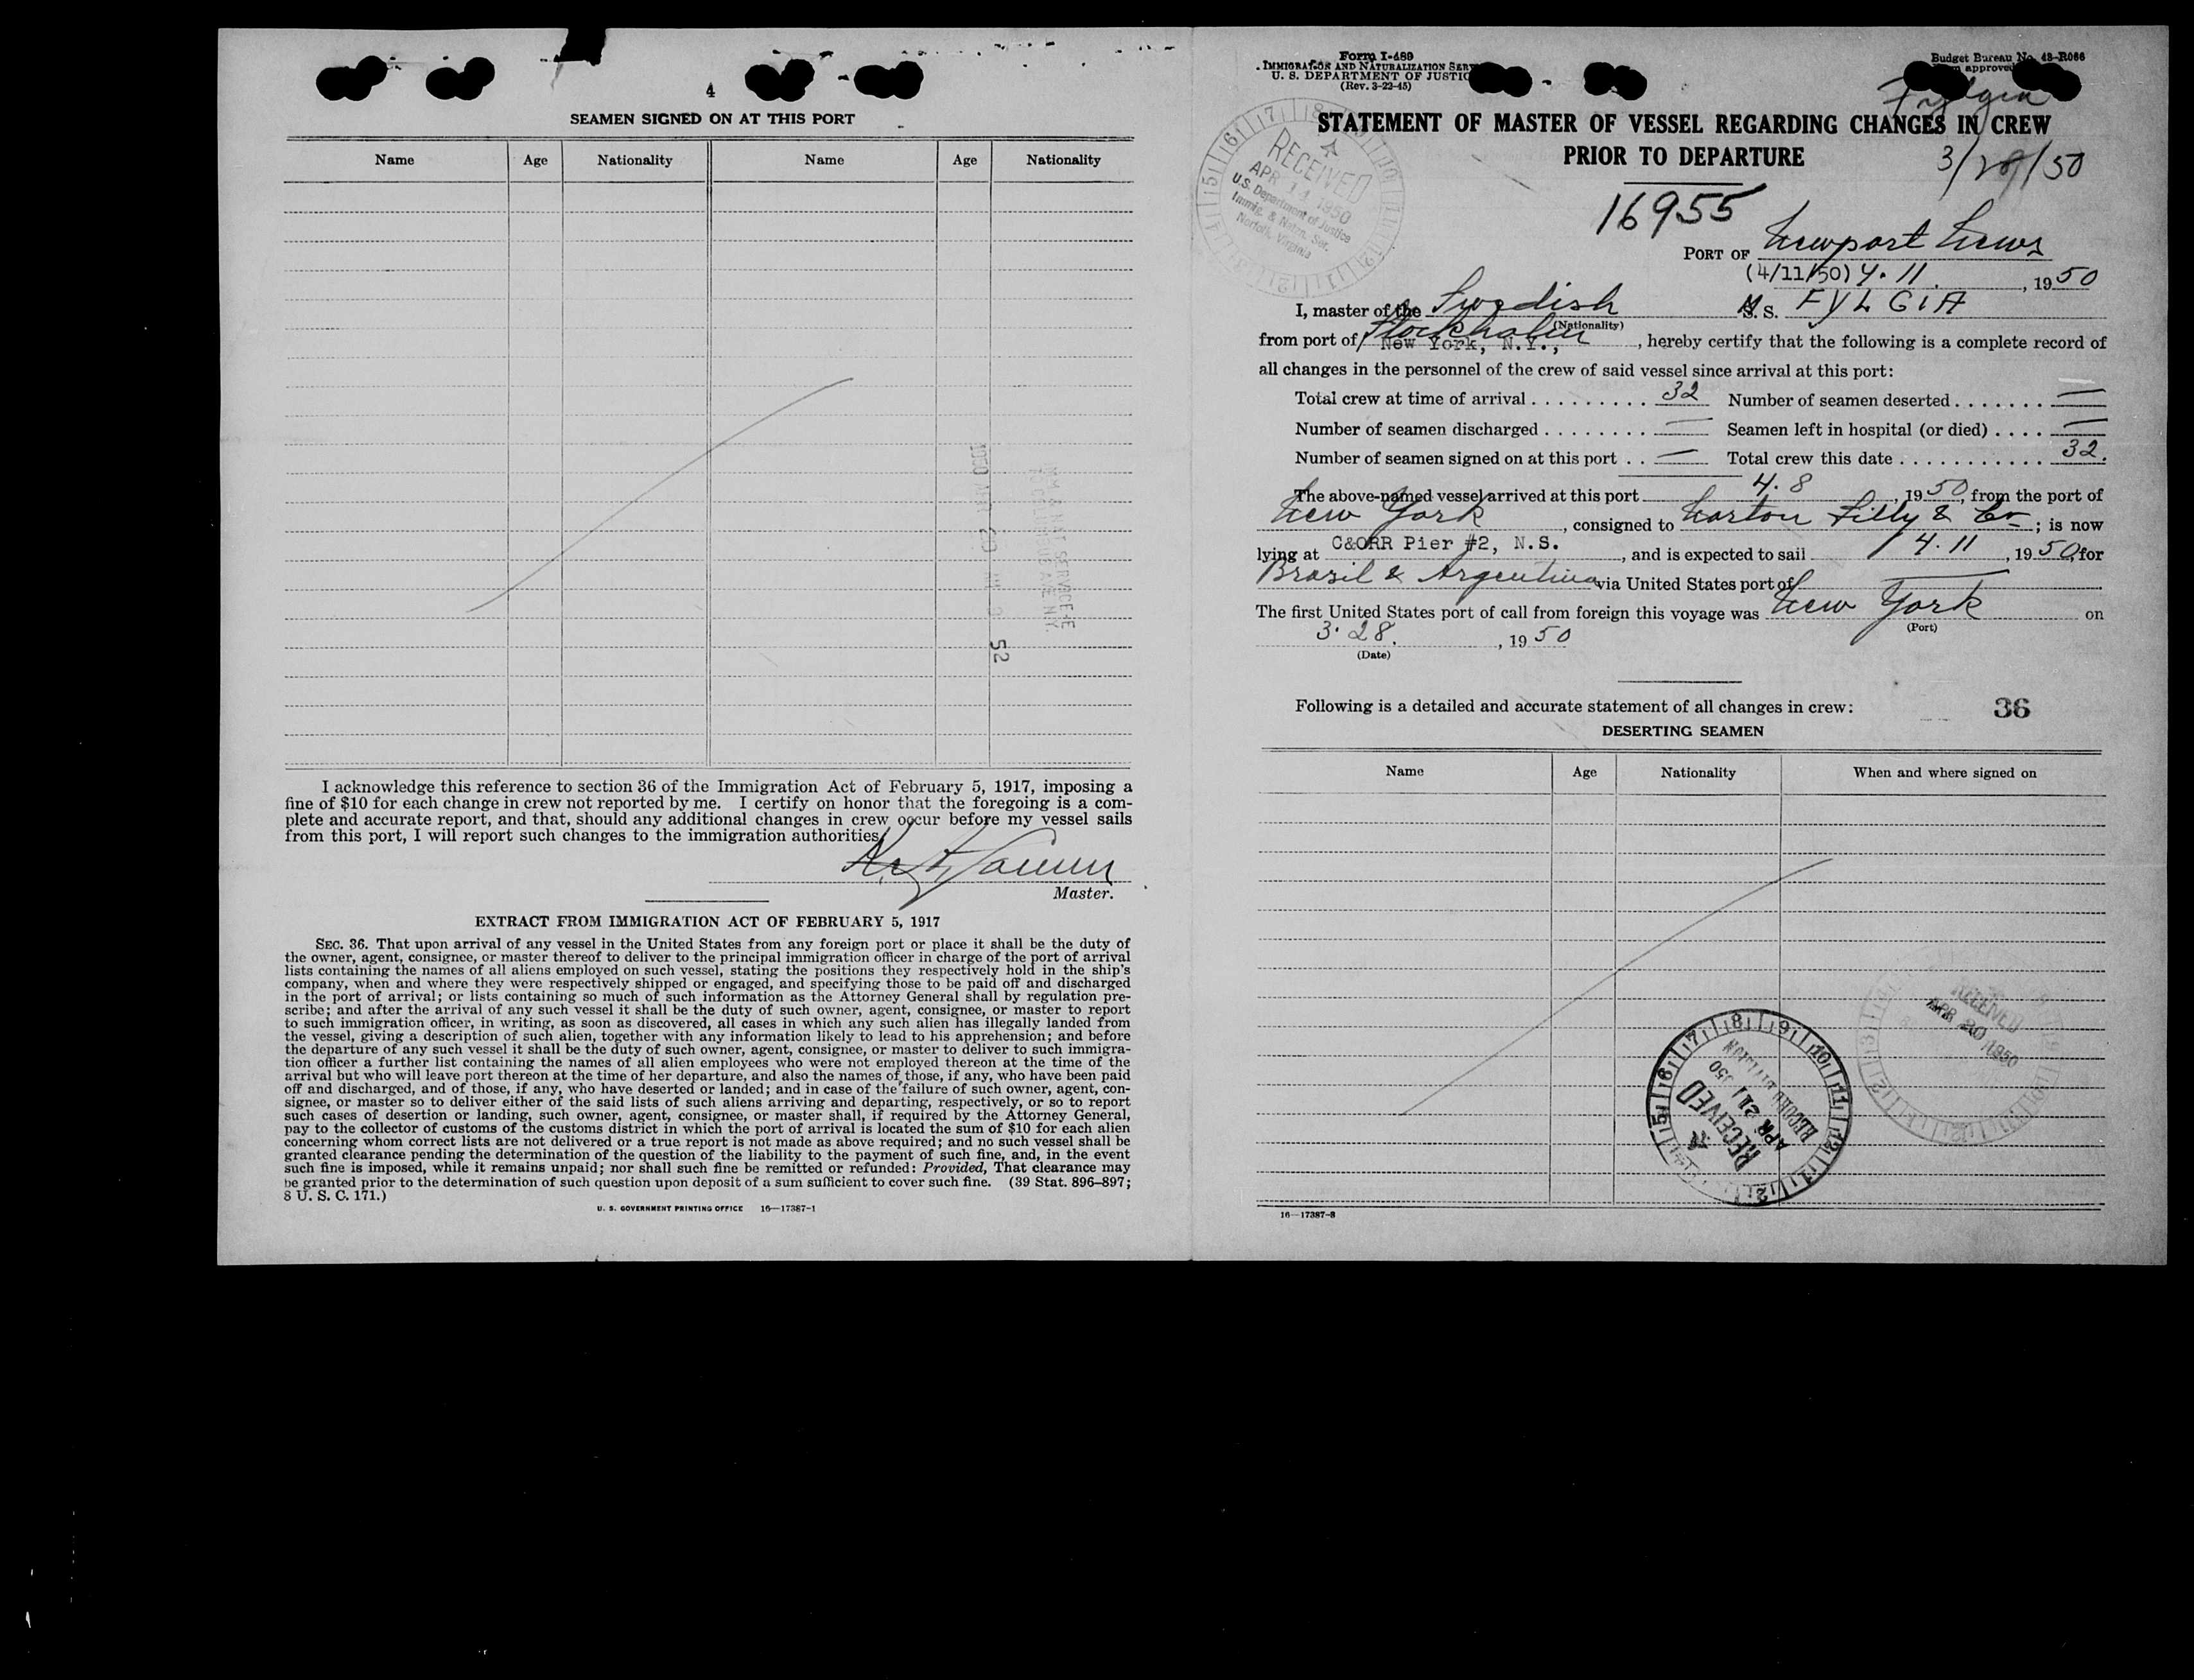 4
SEAMEN SIGNED ON AT THIS PORT
Name Age Nationality Name Age Nationality
52
I acknowledge this reference to section 36 of the Immigration Act of February 5, 1917, imposing a
fine of $10 for each change in crew not reported by me. I certify on honor that the foregoing is a com-
plete and accurate report, and that, should any additional changes in crew occur before my vessel sails
from this port, I will report such changes to the immigration authorities.
Master.
EXTRACT FROM IMMIGRATION ACT OF FEBRUARY 5, 1917
SEC. 36. That upon arrival of any vessel in the United States from any foreign port or place it shall be the duty of
the owner, agent, consignee, or master thereof to deliver to the principal immigration officer in charge of the port of arrival
lists containing the names of all aliens employed on such vessel, stating the positions they respectively hold in the ship's
company, when and where they were respectively shipped or engaged, and specifying those to be paid off and discharged
in the port of arrival; or lists containing so much of such information as the Attorney General shall by regulation pre-
scribe; and after the arrival of any such vessel it shall be the duty of such owner, agent, consignee, or master to report
to such immigration officer, in writing, as soon as discovered, all cases in which any such alien has illegally landed from
the vessel, giving a description of such alien, together with any information likely to lead to his apprehension; and before
the departure of any such vessel it shall be the duty of such owner, agent, consignee, or master to deliver to such immigra-
tion officer a further list containing the names of all alien employees who were not employed thereon at the time of the
arrival but who will leave port thereon at the time of her departure, and also the names of those, if any, who have been paid
off and discharged, and of those, if any, who have deserted or landed; and in case of the failure of such owner, agent, con-
signee, or master so to deliver either of the said lists of such aliens arriving and departing, respectively, or so to report
such cases of desertion or landing, such owner, agent, consignee, or master shall, if required by the Attorney General,
pay to the collector of customs of the customs district in which the port of arrival is located the sum of $10 for each alien
concerning whom correct lists are not delivered or a true report is not made as above required; and no such vessel shall be
granted clearance pending the determination of the question of the liability to the payment of such fine, and, in the event
such fine is imposed, while it remains unpaid; nor shall such fine be remitted or refunded: Provided, That clearance may
be granted prior to the determination of such question upon deposit of a sum sufficient to cover such fine. (39 Stat. 896–897;
8 U. S. C. 171.)
U. S. GOVERNMENT PRINTING OFFICE 16—17387-1
Form I-489
IMMIGRATION AND NATURALIZATION SER
U. S. DEPARTMENT OF JUSTIC
(Rev. 3-22-45)
Budget Bureau No. 43-R066
approved
Fylgia
STATEMENT OF MASTER OF VESSEL REGARDING CHANGES IN CREW
PRIOR TO DEPARTURE
3/28/50
RECEIVED
APR 11 1950
U.S. Department of Justice
Immig. & Natzn. Ser.
Norfolk, Virginia
16955
PORT OF Newport News
(4/11/50) 4.11. , 1950
I, master of the Swedish M. S. FYLGIA
(Nationality)
from port of Stockholm New York, N.Y., , hereby certify that the following is a complete record of
all changes in the personnel of the crew of said vessel since arrival at this port:
Total crew at time of arrival . . . . . . . . . 32 Number of seamen deserted . . . . . . . —
Number of seamen discharged . . . . . . . . — Seamen left in hospital (or died) . . . . —
Number of seamen signed on at this port . . — Total crew this date . . . . . . . . . . . . 32.
The above-named vessel arrived at this port 4.8 , 1950, from the port of
New York , consigned to Norton Lilly & Co ; is now
lying at C&ORR Pier #2, N.S. , and is expected to sail 4.11 , 1950, for
Brasil & Argentina via United States port of —
The first United States port of call from foreign this voyage was New York on
(Port)
3.28. , 1950
(Date)
Following is a detailed and accurate statement of all changes in crew: 36
DESERTING SEAMEN
Name Age Nationality When and where signed on
RECEIVED
APR 20 1950
RECEIVED
APR 21
RECORD
16—17387-3